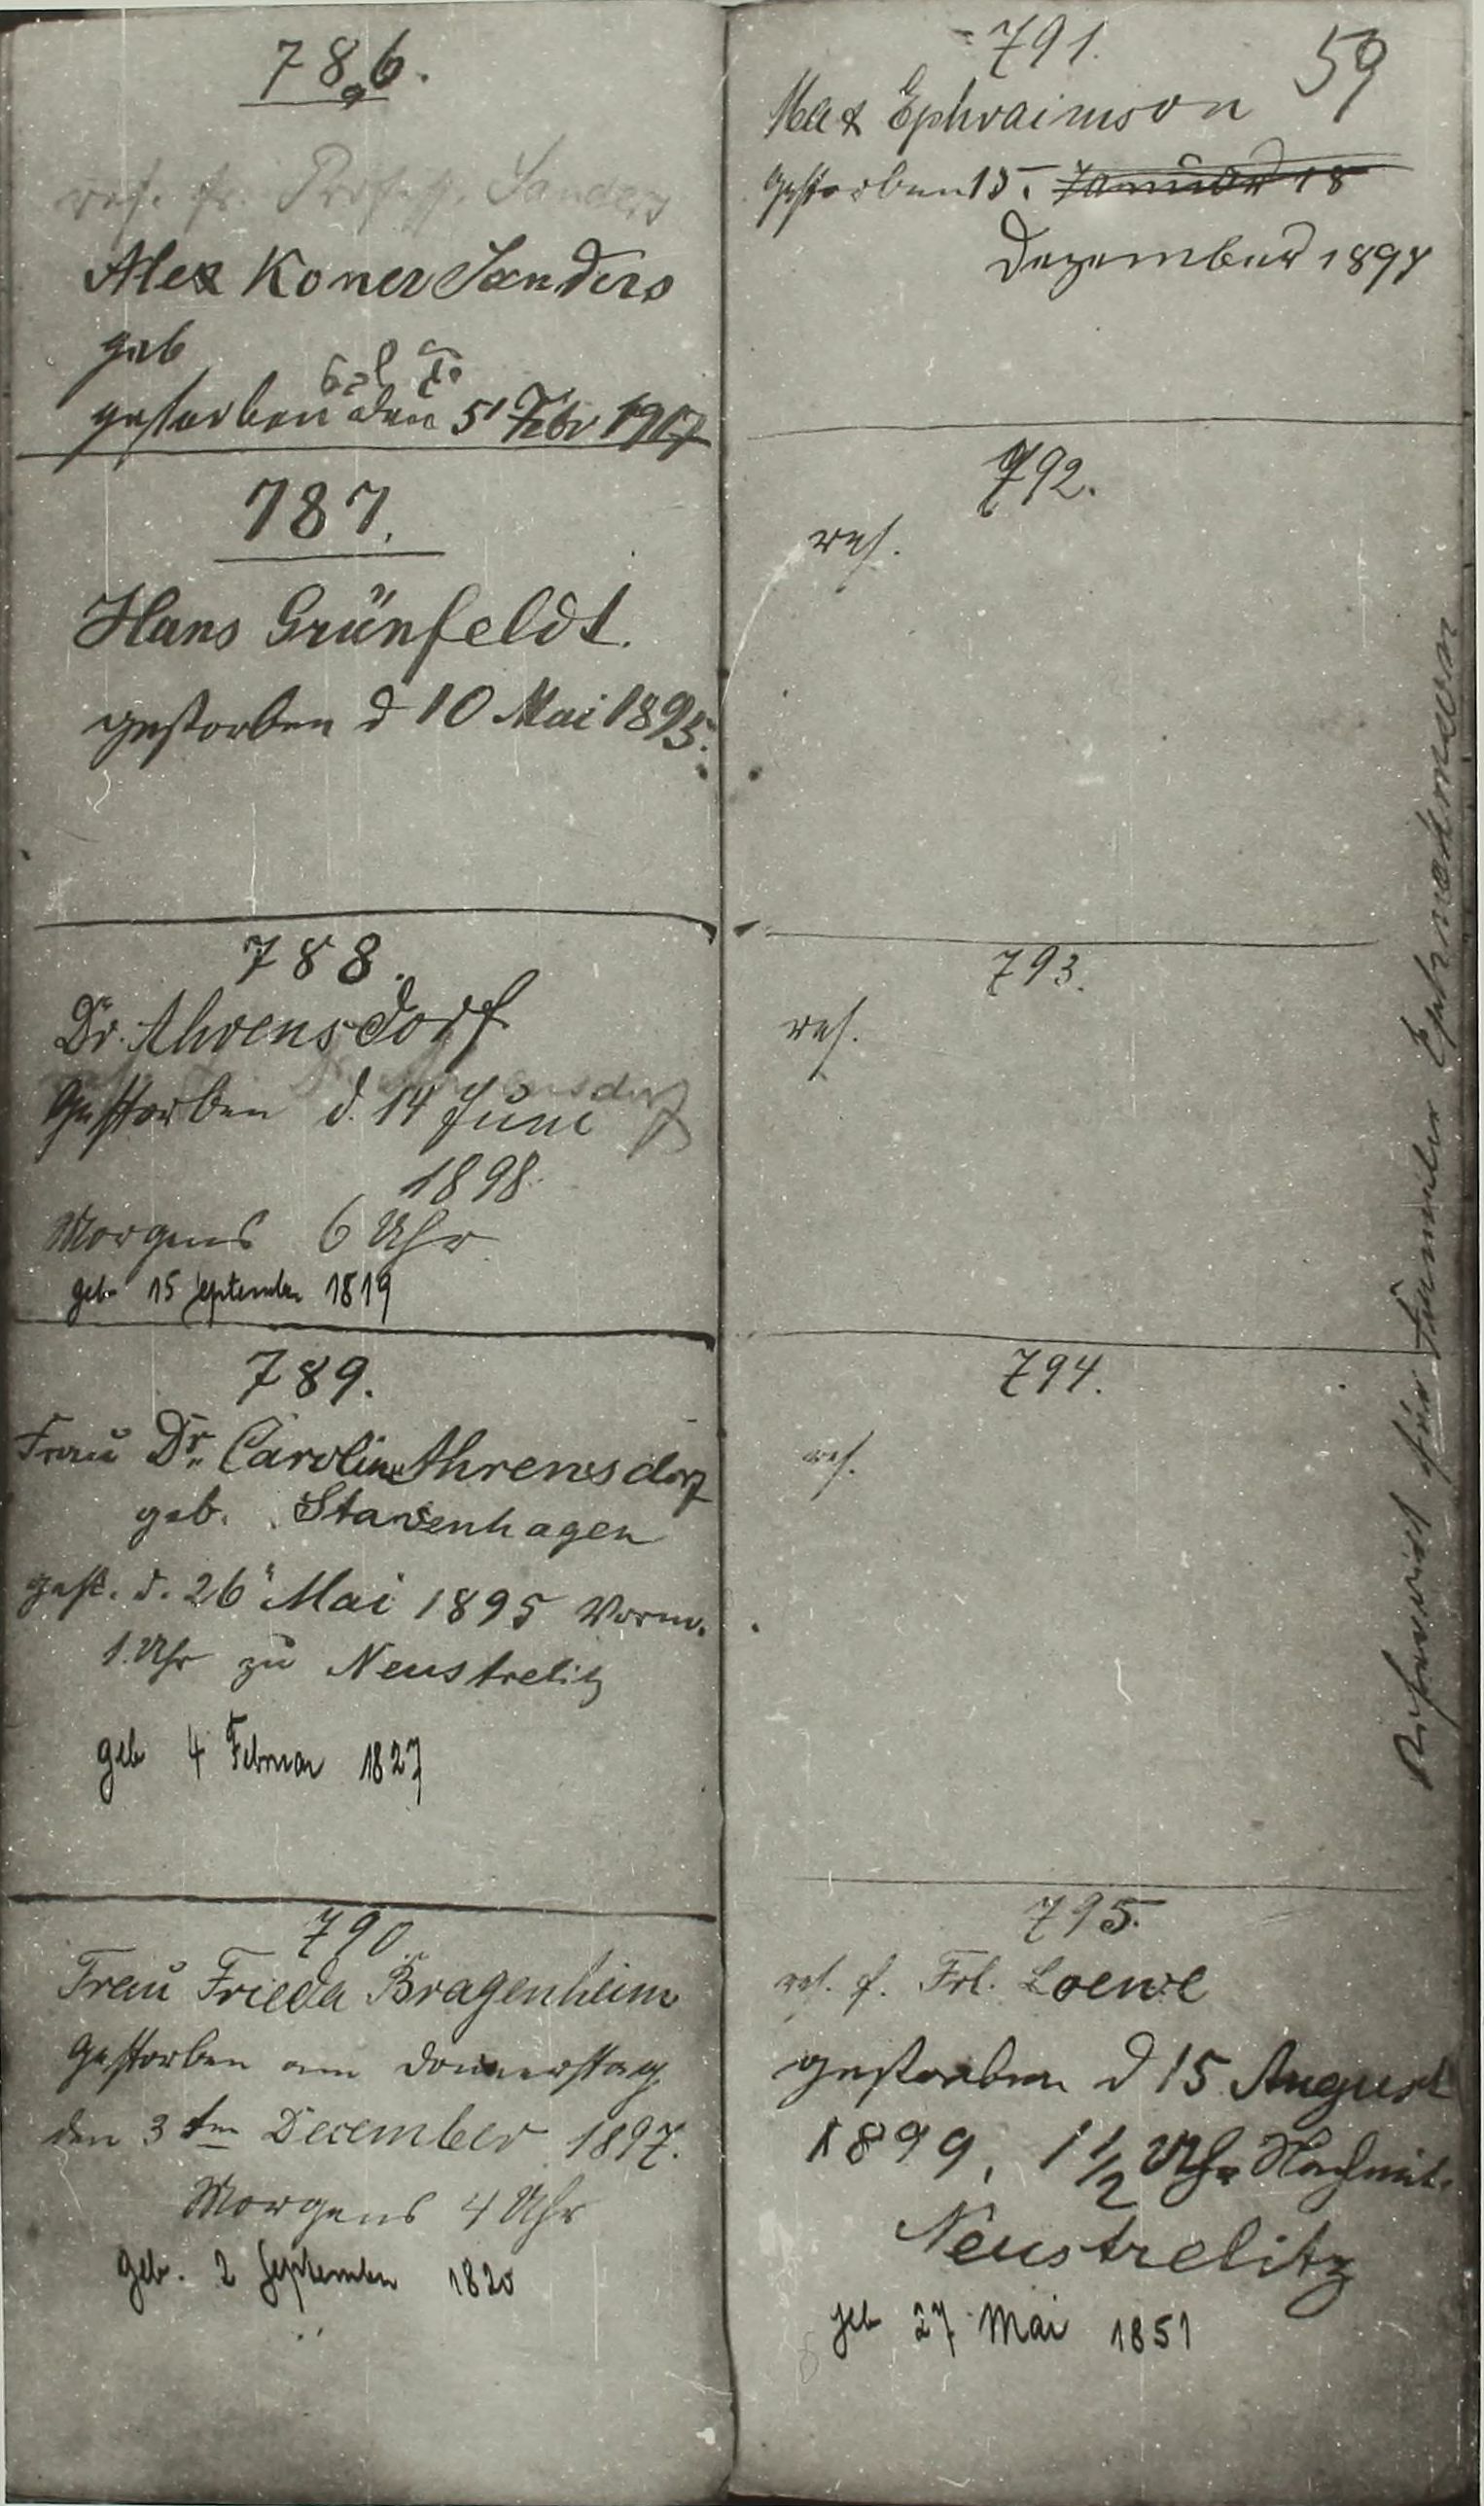 786.
res. fr. Profess. Sanders
Alex Koner Sanders
geb
gestorben den 5 Febr 1917
787.
Hans Grünfeldt.
gestorben d 10 Mai 1895.
788.
Dr. Ahrensdorf
Gestorben d. 14 Juni
1898.
Morgens 6 Uhr
geb 15 September 1819
789.
Frau Dr. Caroline Ahrensdorf
geb. Stavenhagen
gest. d. 26 Mai 1895 Vorm.
1. Uhr zu Neustrelitz
geb 4 Februar 1827
790.
Frau Frieda Bragenheim
Gestorben am Donnerstag
den 3ten December 1897.
Morgens 4 Uhr
geb. 2 September 1820
59
791.
Max Ephraimson
Gestorben 15. Januar 18
Dezember 1897
792.
res.
793.
res.
794.
res.
Reserviert für Familie Ephraimson
795.
res. f. Frl. Loewe
gestorben d 15 August
1899, 1 1/2 Uhr Nachmit.
Neustrelitz
geb 27 Mai 1851